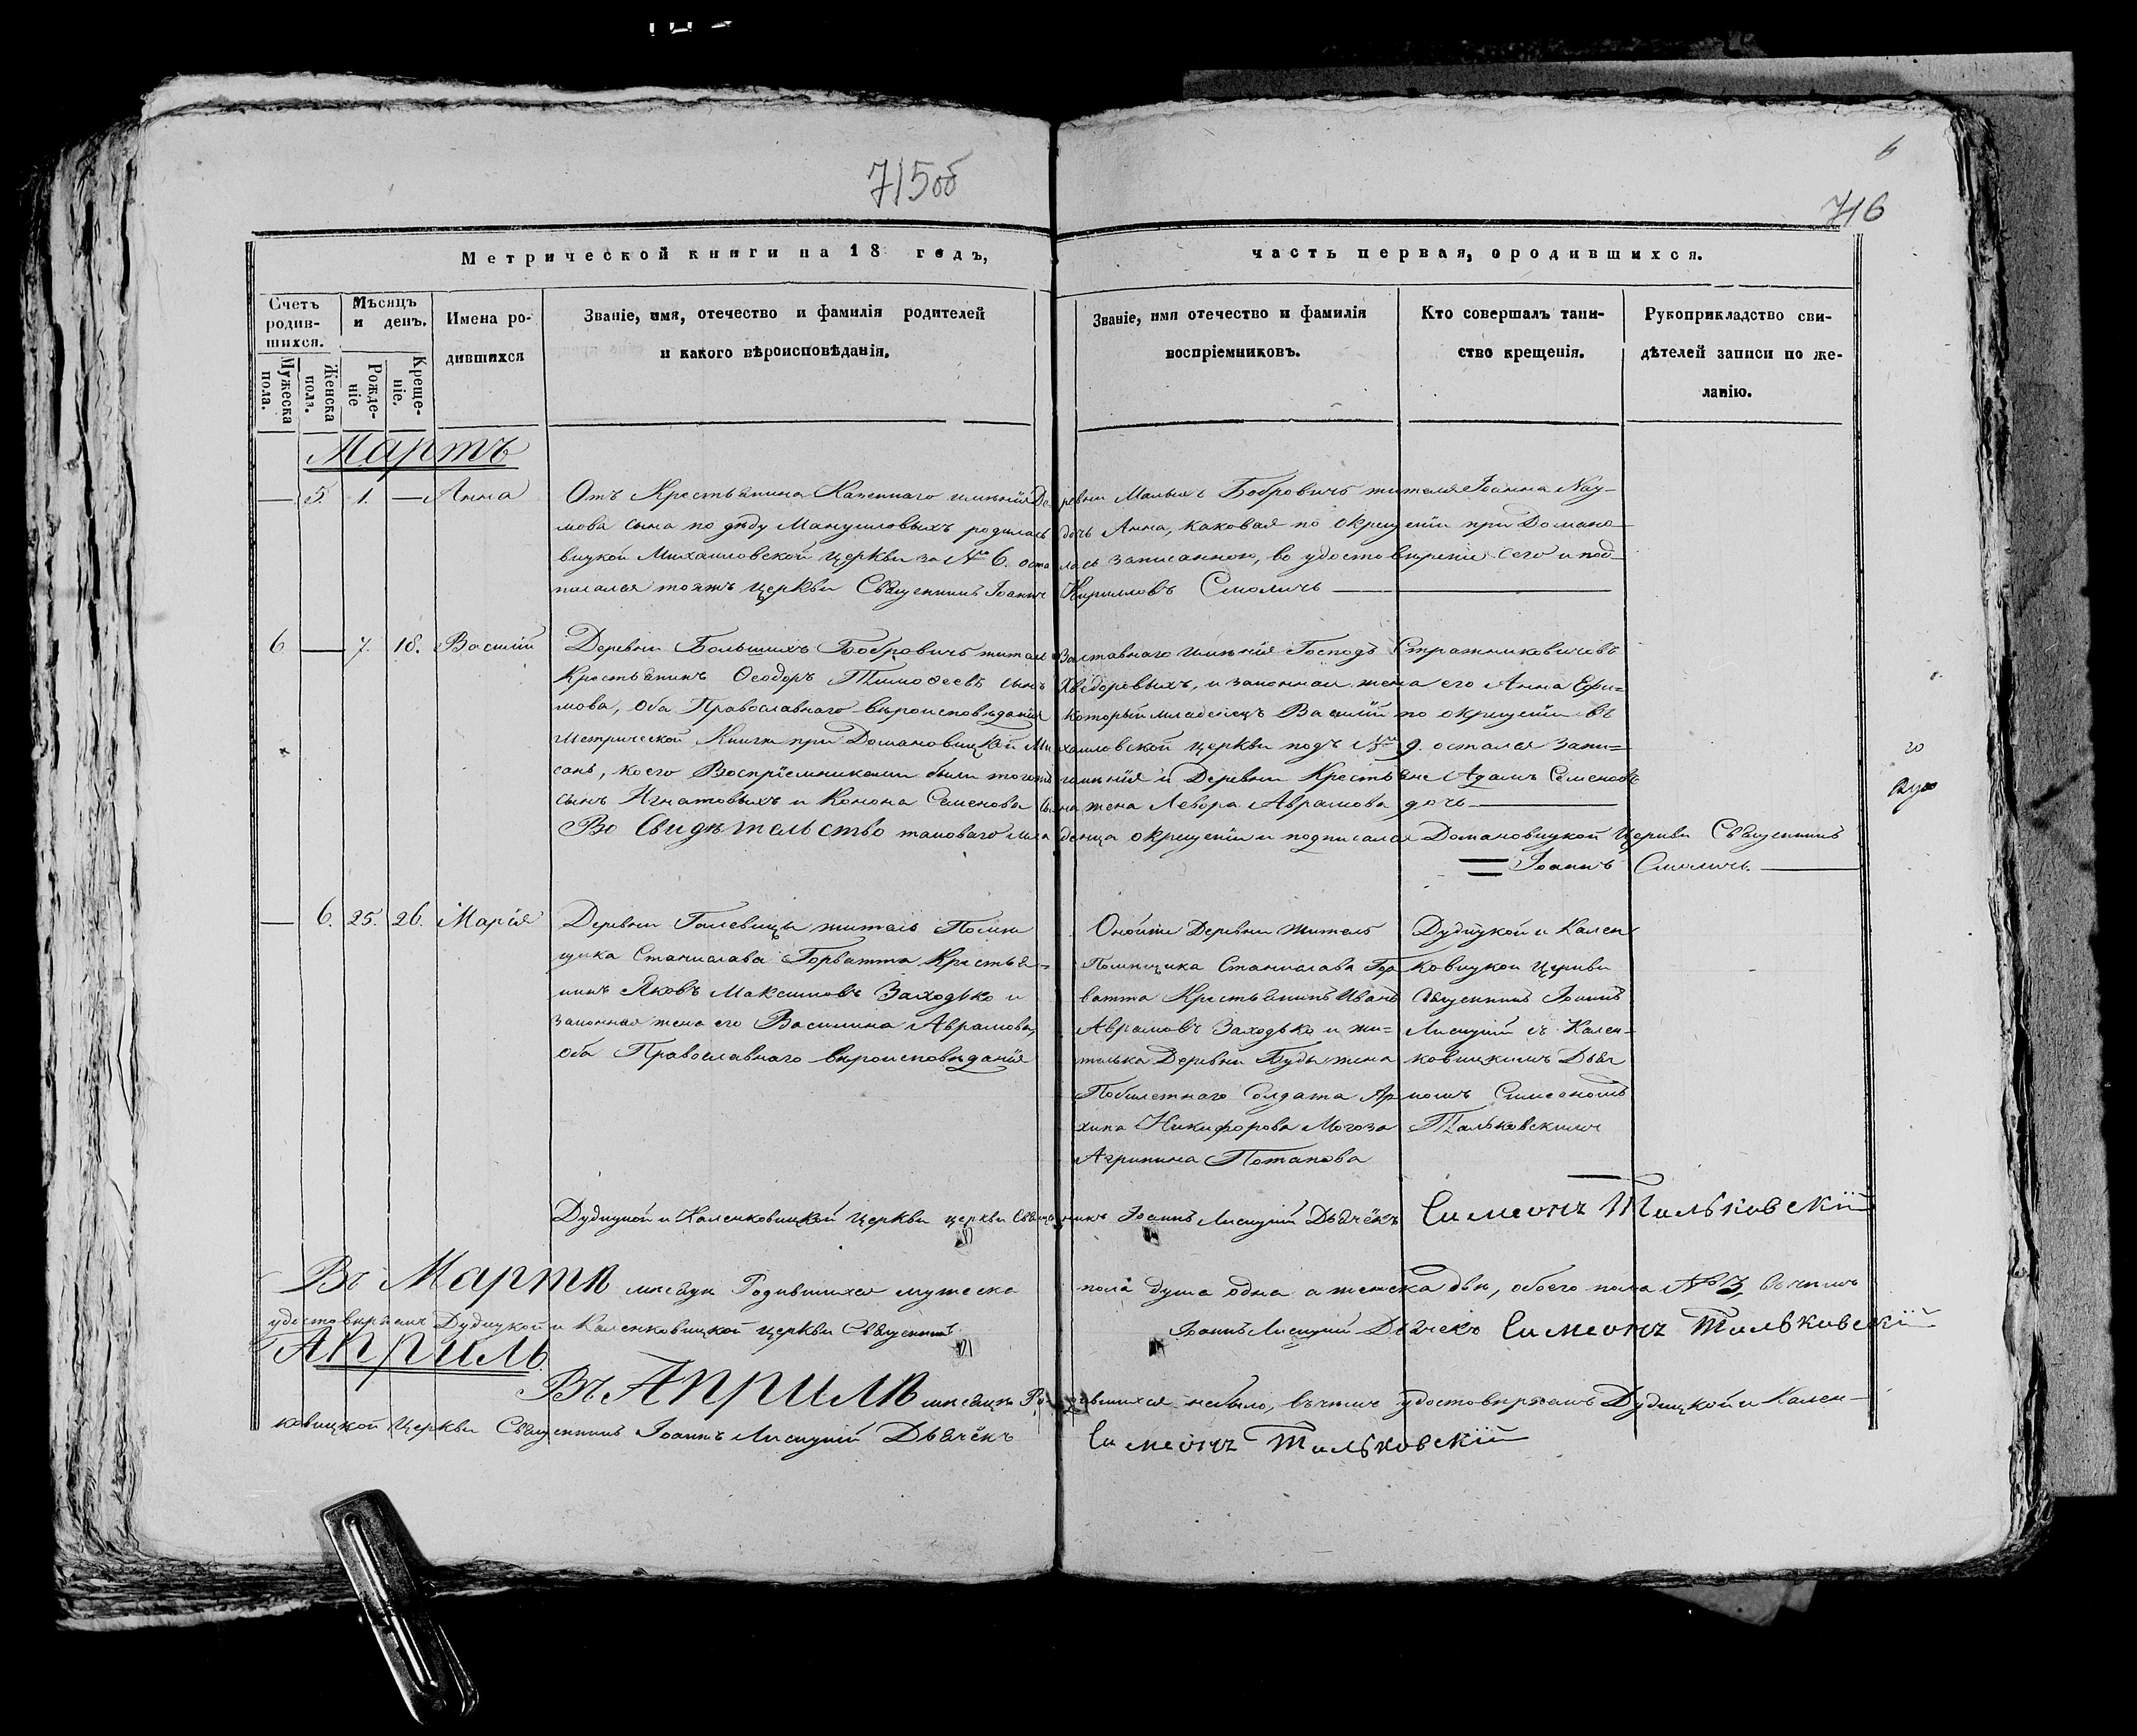 715об
6
716
Метрической книги на 18 годъ,
часть первая, ородившихся.
Счетъ родив-шихся.
Мѣсяцъ и день.
Имена ро-дившихся
Званіе, имя, отечество и фамилія родителей
и какого вѣроисповѣданія.
Званіе, имя отечество и фамилія
воспріемниковъ.
Кто совершалъ таин-
ство крещенія.
Рукоприкладство сви-
дѣтелей записи по же-
ланію.
Мужеска пола.
Женска пола.
Рожде-ніе
Креще-ніе.
Мартъ
— 5 1. — Анна
Отъ Крестьянина Казеннаго имѣнія Деревни Малыхъ Бобровичъ жителя Іоанна Нау-
мова сына по дѣду Мануиловыхъ родилась дочь Анна, каковая по окрещеніи при Домано-
вицкой Михаиловской церкви за № 6. осталась записанною, во удостовѣреніе сего и под-
писался тояжъ церкви Священникъ Іоаннъ Кирилловъ Смоличь
6 — 7. 18. Василій
Деревни Большихъ Бобровичъ жители Заставнаго имѣнія Господъ Стражниковичевъ
Крестьянинъ Ѳеодоръ Тимоѳеевъ сынъ Хведоровыхъ, и законная жена его Анна Ефи=
мова, оба Православнаго вѣроисповѣданія который младенецъ Василій по окрещеніи въ
Метрической Книги при Домановицкой Михаиловской церкви подъ № 9. остался запи=
санъ, коего Воспріемниками были тогожъ имѣнія и Деревни Крестьяне Адамъ Семеновъ
сынъ Игнатовыхъ и Конона Семенова сына жена Левора Аврамова дочь
Во Свидѣтельство таковаго младенца окрещеніи и подписался Домановицкой Церкви Священникъ
Іоаннъ Смоличь.
— 6. 25. 26. Марія
Деревни Галевицы житель Помѣ
щика Станислава Горватта Крестья=
нинъ Яковъ Максимовъ Заходько и
законная жена его Василина Аврамова,
оба Православнаго вѣроисповѣданія
Оной же Деревни житель
Помѣщика Станислава Гор
ватта Крестьянинъ Иванъ
Аврамовъ Заходько и жи=
телька Деревни Буды жена
Побилетнаго Солдата Ар
хипа Никифорова Мотоза
Агрипина Потапова
Дудицкой и Кален
ковицкой Церкви
Священникъ Іоаннъ
Лисицкій съ Кален-
ковицкимъ Дьяч
комъ Симеономъ
Тальковскимъ
Дудицкой и Каленковицкой Церкви церкви Священникъ Іоаннъ Лисицкій Дьячёкъ Симеонъ Тальковскій
Въ Мартѣ мѣсяцѣ Родившихся мужеска пола душа одна а женска двѣ, обоего пола № 3, въ чемъ
удостовѣряемъ Дудицкой и Каленковицкой церкви Священникъ Іоаннъ Лисицкій Дьячекъ Симеонъ Тальковскій
Апрѣль
Въ Апрѣлѣ мѣсяцѣ Родившихся небыло, въ чемъ удостовѣряемъ Дудицкой и Кален-
ковицкой Церкви Священникъ Іоаннъ Лисицкій Дьячёкъ Симеонъ Тальковскій